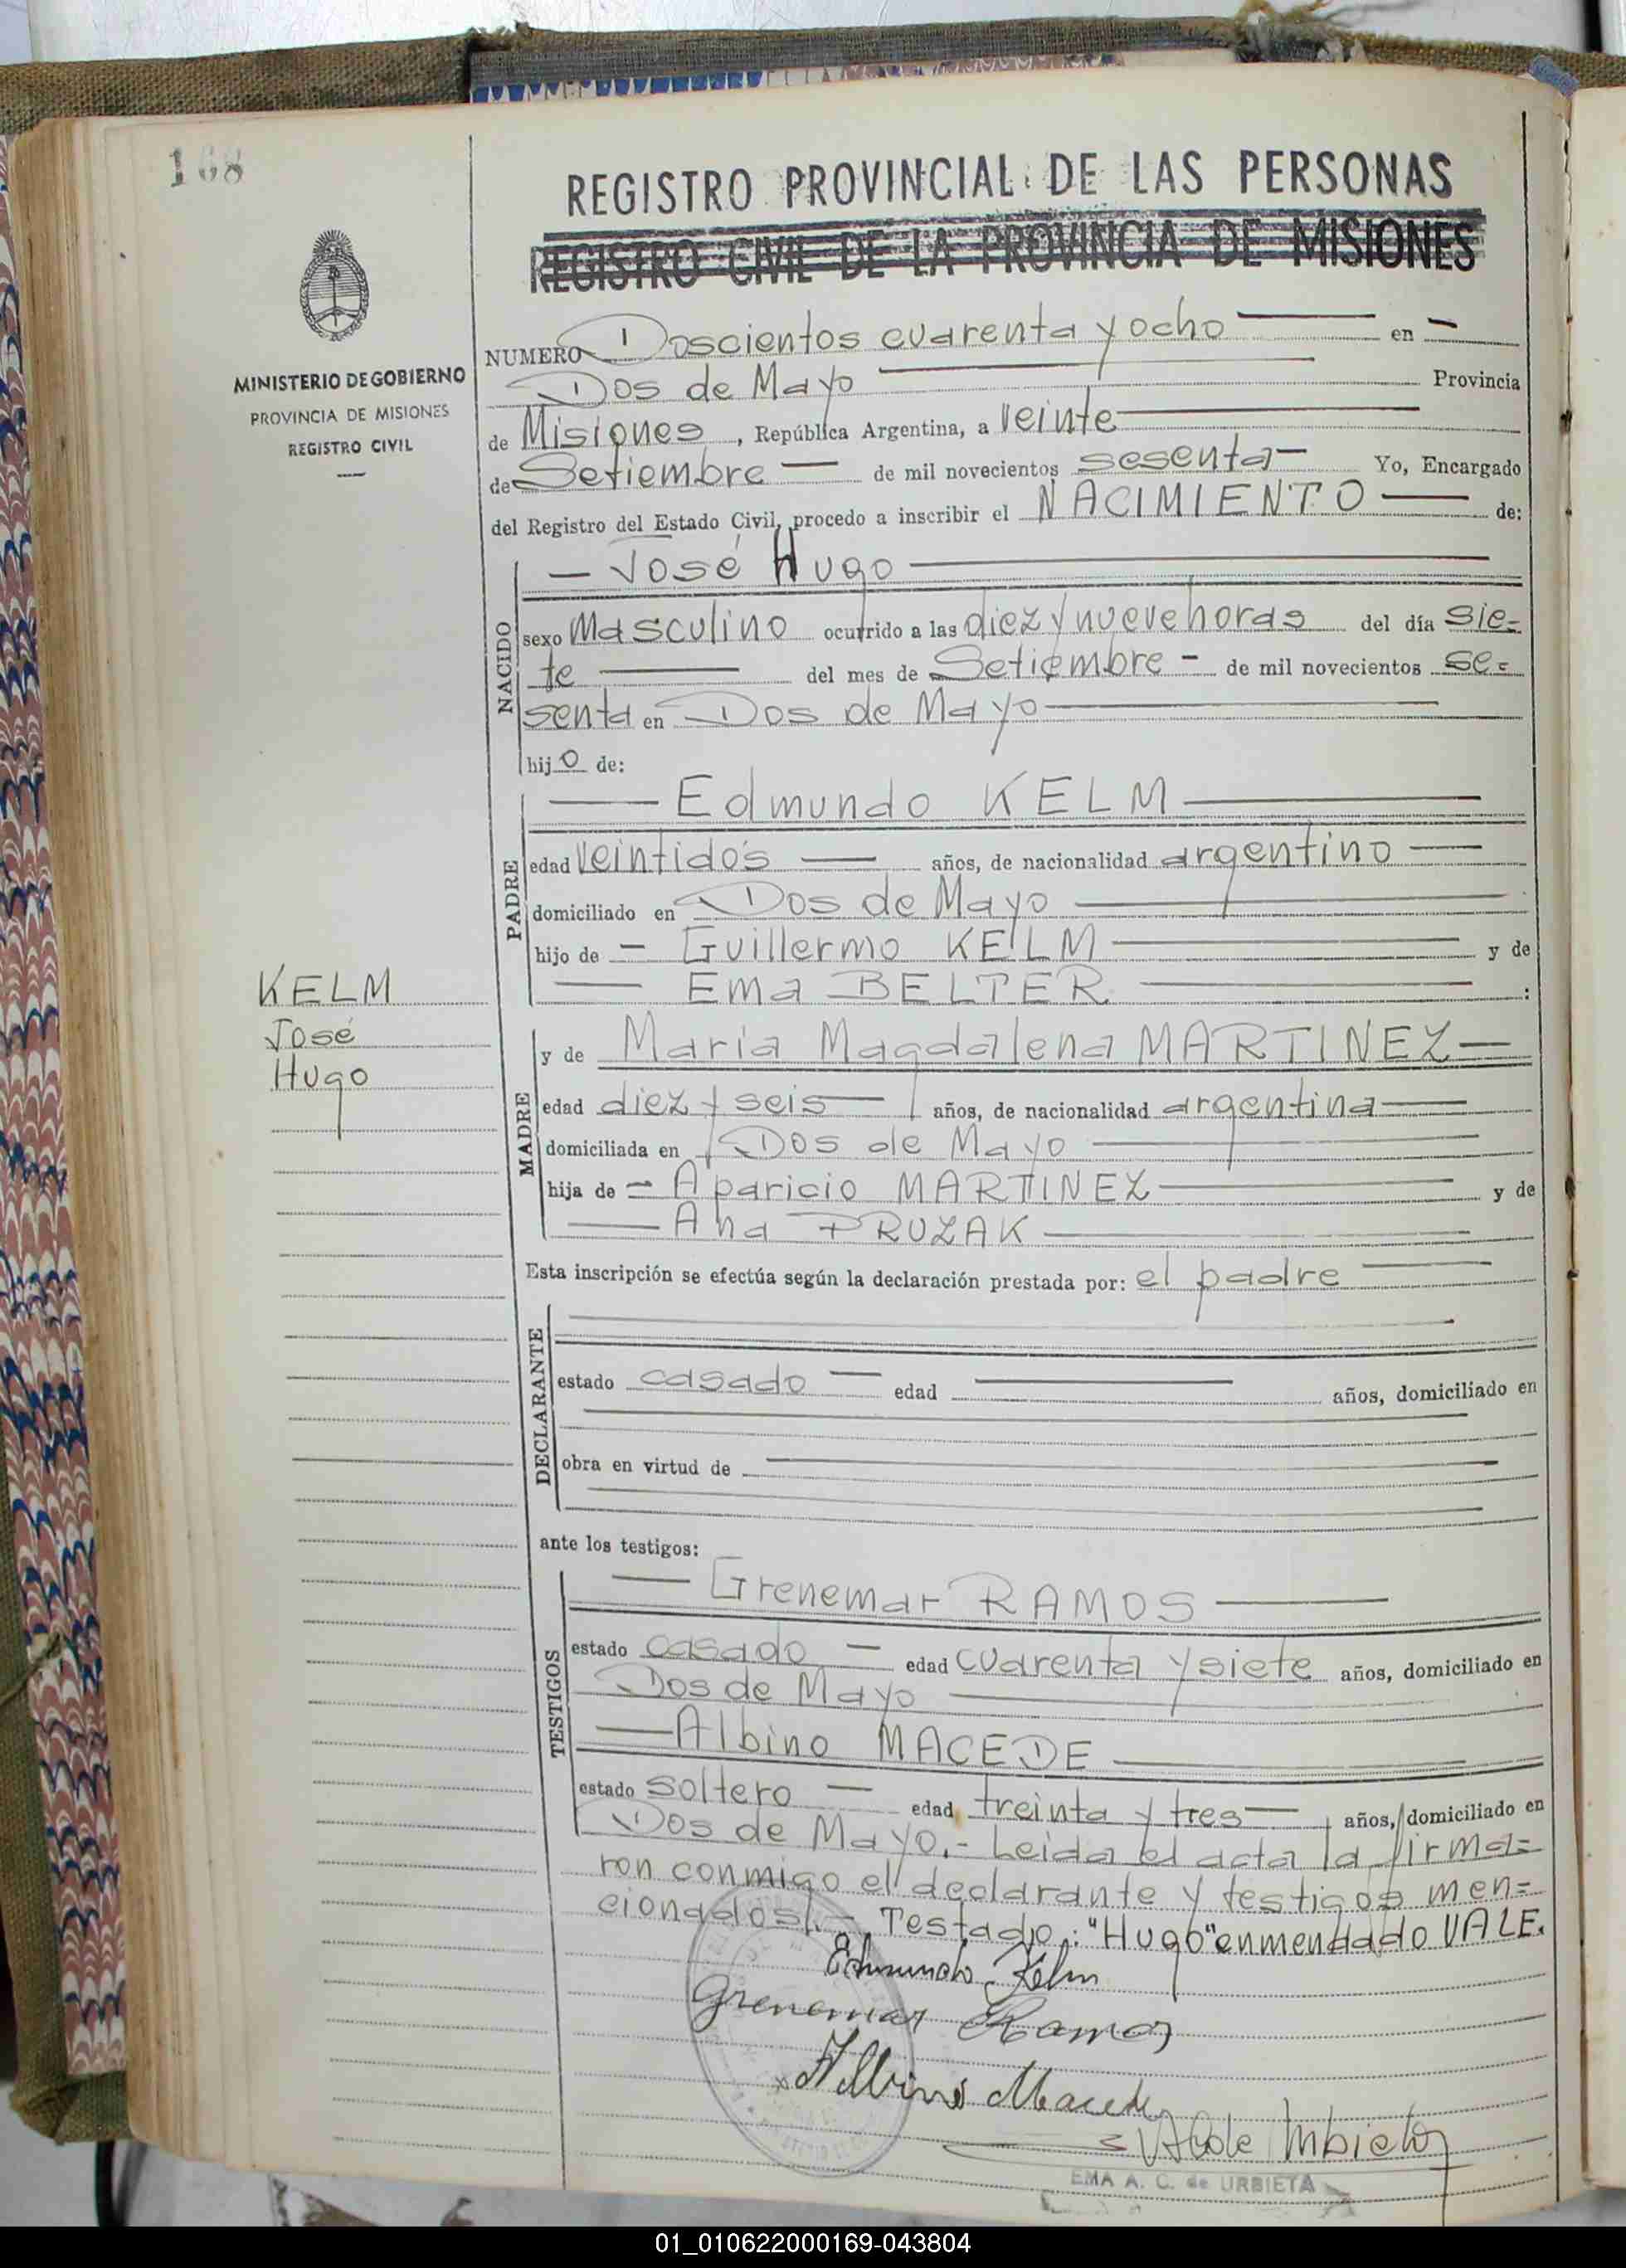 168
REGISTRO PROVINCIAL DE LAS PERSONAS
REGISTRO CIVIL DE LA PROVINCIA DE MISIONES
MINISTERIO DE GOBIERNO
PROVINCIA DE MISIONES
REGISTRO CIVIL
NUMERO Doscientos cuarenta y ocho en
Dos de Mayo Provincia
de Misiones, República Argentina, a veinte
de Setiembre de mil novecientos sesenta Yo, Encargado
del Registro del Estado Civil, procedo a inscribir el NACIMIENTO de:
NACIDO
José Hugo
sexo Masculino ocurrido a las diez y nueve horas del día sie=
te del mes de Setiembre - de mil novecientos se=
senta en Dos de Mayo
hijo de:
PADRE
Edmundo KELM
edad veintidós años, de nacionalidad argentino
domiciliado en Dos de Mayo
hijo de - Guillermo KELM y de
Ema BELTER :
KELM
José
Hugo
MADRE
y de Maria Magdalena MARTINEZ
edad diez y seis años, de nacionalidad argentina
domiciliada en Dos de Mayo
hija de - Aparicio MARTINEZ y de
Ana PRUZAK
Esta inscripción se efectúa según la declaración prestada por: el padre
DECLARANTE
estado casado edad años, domiciliado en
obra en virtud de
ante los testigos:
TESTIGOS
Grenemar RAMOS
estado casado edad cuarenta y siete años, domiciliado en
Dos de Mayo
Albino MACEDE
estado soltero edad treinta y tres años, domiciliado en
Dos de Mayo.- Leida el acta la firma=
ron conmigo el declarante y testigos men=
cionados.- Testado: "Hugo" enmendado VALE.
Edmundo Kelm
Grenemar Ramos
Albino Macede
EMA A. C. de URBIETA
01_010622000169-043804